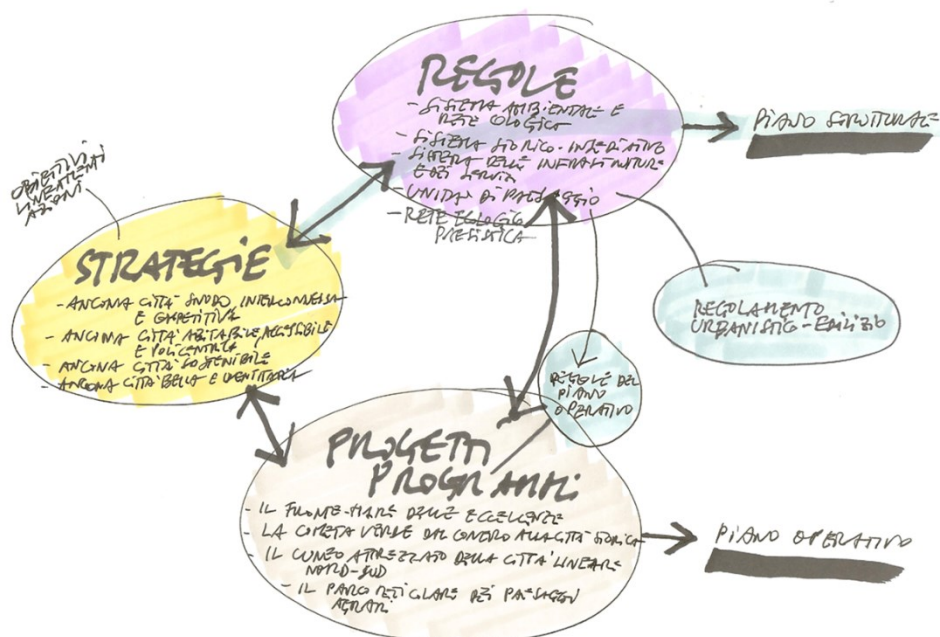 REGOLE
- SISTEMA AMBIENTALE E
RETE
- SISTEMA STORICO-INSEDIATIVO
- SISTEMA DELLE INFRASTRUTTURE
E DEI SERVIZI
- UNITA' DI PAESAGGIO
- RETE ECOLOGICO
PIANO STRUTTURALE
OBIETTIVI
LINEAMENTI
AZIONI
STRATEGIE
- ANCONA CITTA' SNODO, INTERCONNESSA
E COMPETITIVA
- ANCONA CITTA' ABITABILE, ACCESSIBILE
E POLICENTRICA
- ANCONA CITTA' SOSTENIBILE
- ANCONA CITTA' BELLA E IDENTITARIA
REGOLAMENTO
URBANISTICO-EDILIZIO
REGOLE DEL
PIANO
OPERATIVO
PROGETTI
PROGRAMMI
- IL FRONTE-MARE DELLE ECCELLENZE
- LA COMETA VERDE DAL CONERO ALLA CITTÀ STORICA
- IL CUNEO ATTREZZATO DELLA CITTÀ LINEARE
NORD-SUD
- IL PARCO RETICOLARE DEI PAESAGGI
AGRARI
PIANO OPERATIVO